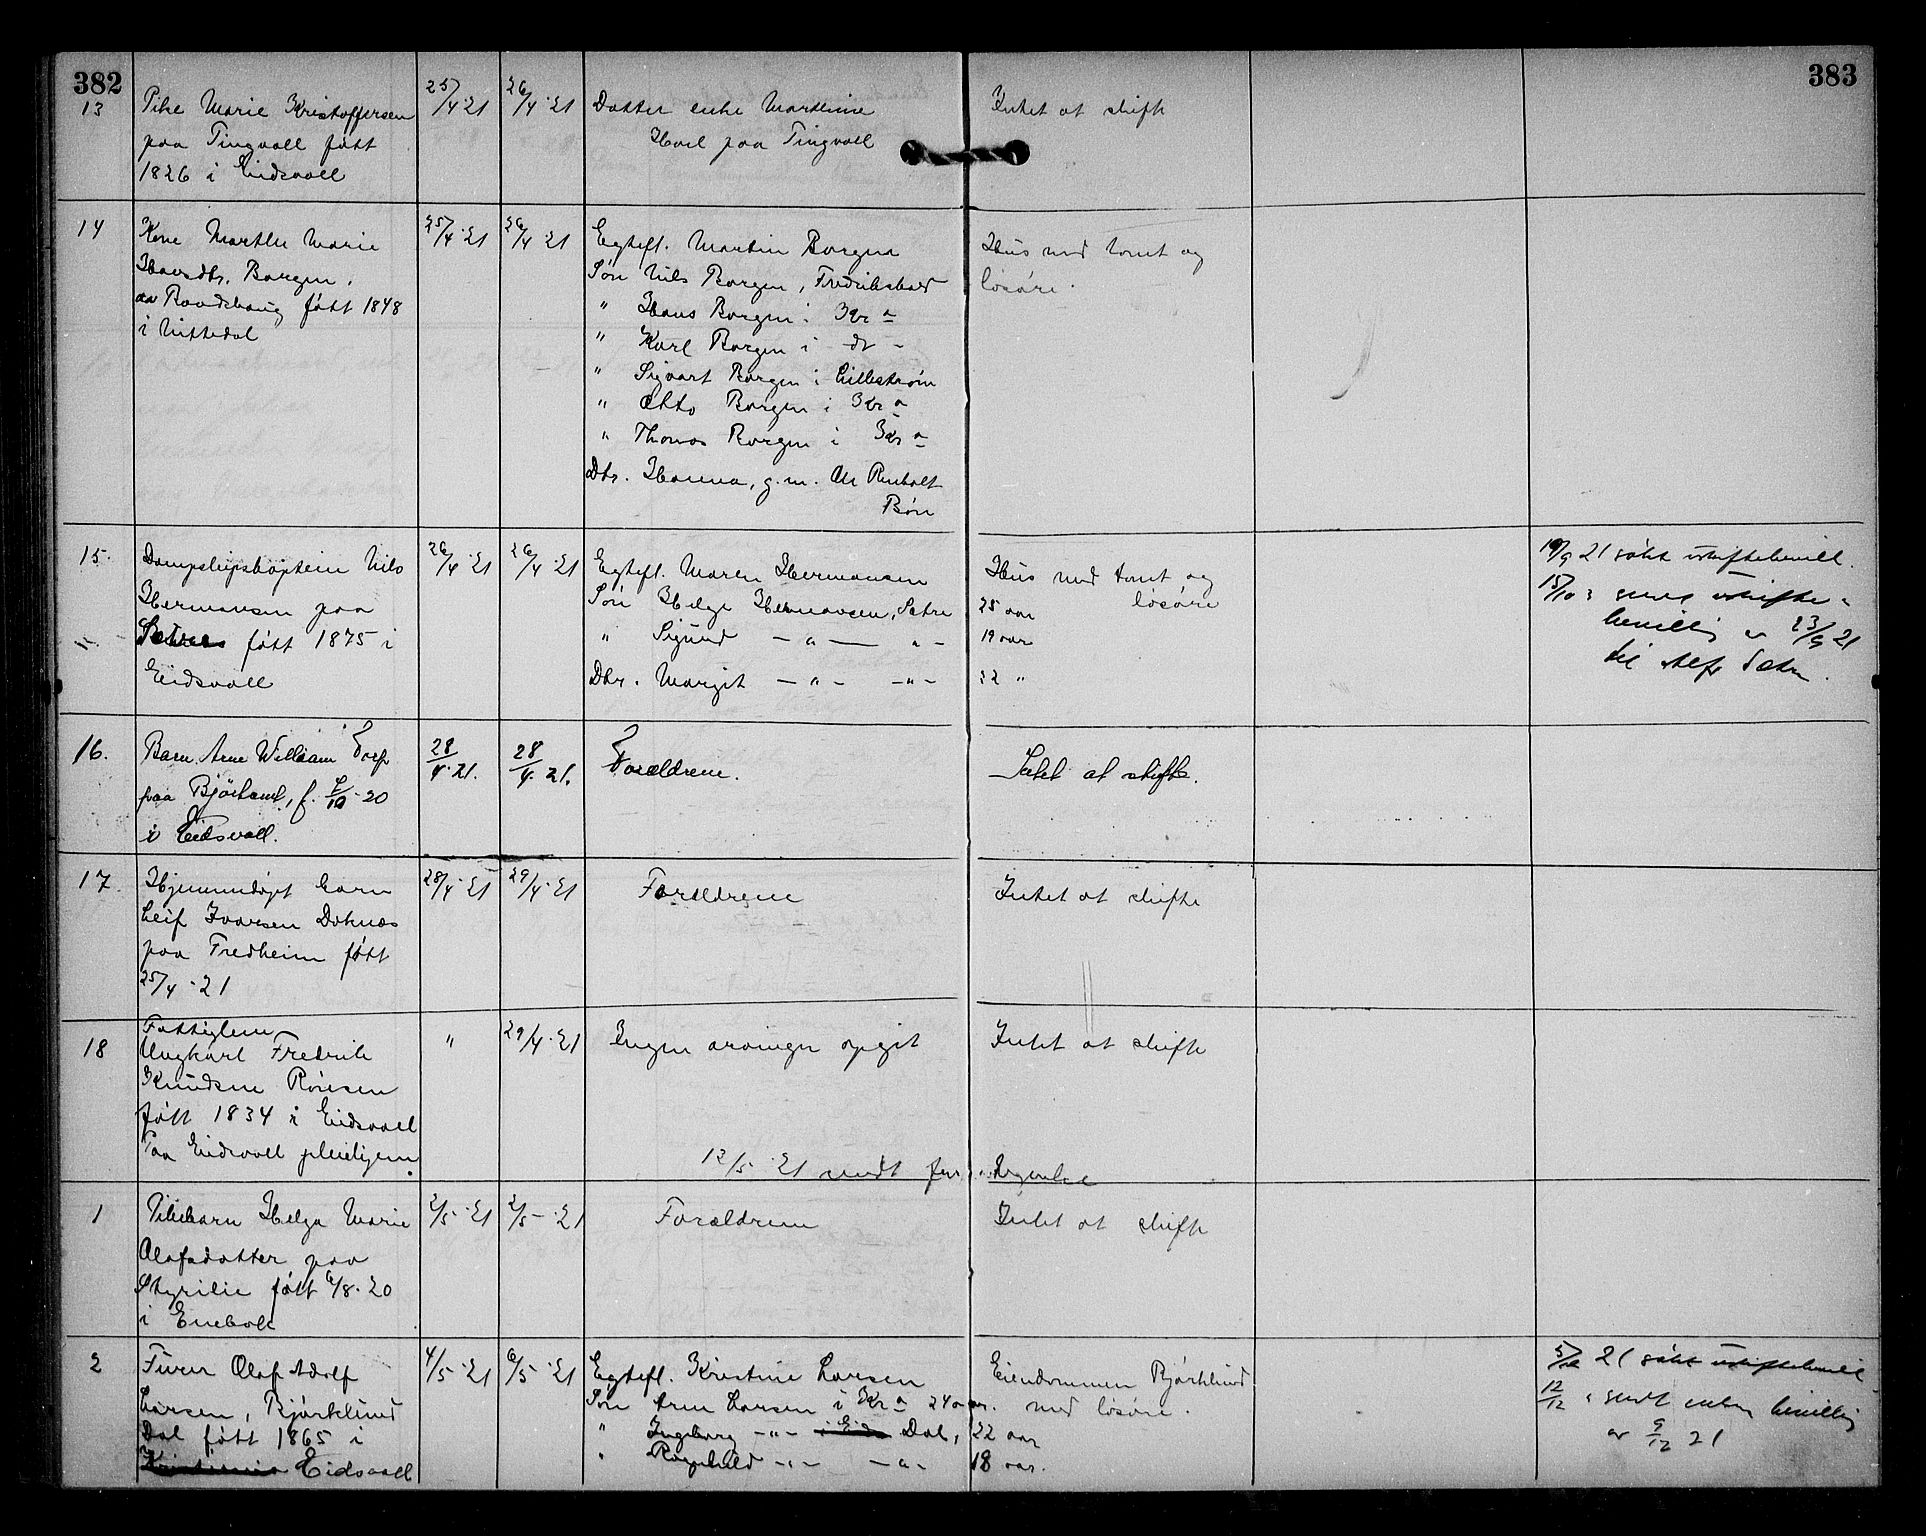 382
383
13
Pike Marie Kristoffersen
paa Tingvoll født
1826 i Eidsvoll
25/4 21
26/4 21
Datter enke Martinie
Hoel paa Tingvoll
Intet at skifte
14
Kone Marthe Marie
Hansdtr. Borgen,
født 1848
i Nittedal
25/4 21
26/4 21
Egtefl. Martin Borgen
Søn Nils Borgen, Fredrikshald
" Hans Borgen i Kr a
" Karl Borgen i - do -
" Sigvart Borgen i Lillestrøm
" Otto Borgen i Kr a
" Thomas Borgen i Kr a
Dtr. Hanna, g.m.
Bøn
Hus med tomt og
løsøre.
15.
Dampskipskaptein Nils
Hermansen paa
født 1875 i
Eidsvoll
26/4 21
26/4 21
Egtefl. Maren Hermansen
Søn Helge Hermansen, Sætre
" Sigurd — " — " -
Dtr. Margit — " - - " -
Hus med tomt og
løsøre
25 aar
19 aar
22 "
19/9 21 søkt uskiftebevill.
15/10 " sendt uskifte-
bevillig av 23/9 21
til
16.
Barn Arne William Dorp
paa f. 20
i Eidsvoll.
28/4 21.
28/4 21.
Forældrene.
Intet at skifte.
17.
Hjemmedøpt barn
Leif Ivarsen Doknæs
paa Fredheim født
25/4 - 21
28/4 21
29/4 21
Forældrene
Intet at skifte
18
Fattiglem
Ungkarl Fredrik
Knudsen
født 1834 i Eidsvoll
Paa Eidsvoll pleiehjem.
"
29/4 21
Ingen arvinger opgit
Intet at skifte
12/5 21 sendt
1
Pikebarn Helga Marie
Olafsdatter paa
Styrilie født 6/8 20
i Enebak
2/5 21
2/5 - 21
Forældrene
Intet at skifte
2
Olaf Adolf
Larsen, Bjørklund
Dal født 1865 i
Kristiania Eidsvoll
4/5 21
6/5 21
Egtefl. Kristine Larsen
Søn Arne Larsen i Kr a 24 aar.
" Ingeborg - " - i Eids Dal, 22 aar
" Ragnhild - " - - " - 18 aar.
Eiendommen Bjørklund
med løsøre.
21 søkt uskiftebevill
12/12 " sendt bevillig
av 9/12 21